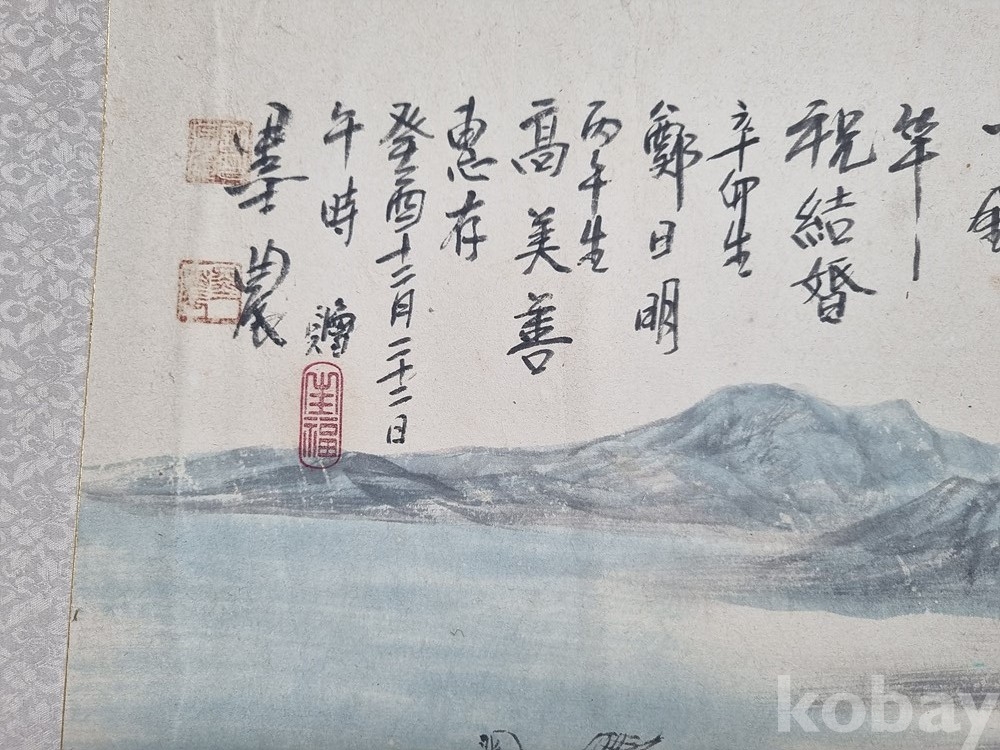 竿
祝結婚
辛卯生
鄭日明
丙午生
高美善
惠存
癸酉十二月二十二日
午時 贈
墨農
kobay